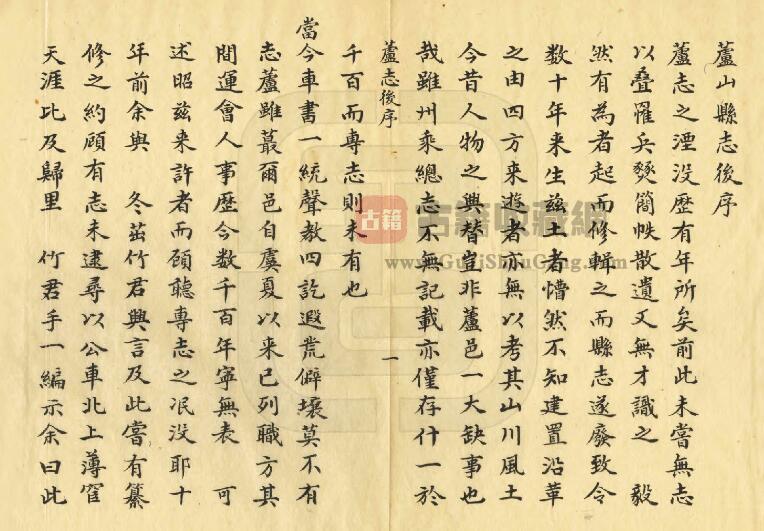 蘆山縣志後序
蘆志之湮没歷有年所矣前此未嘗無志
以叠罹兵燹簡帙散遺又無才識之 毅
然有為者起而修輯之而縣志遂廢致令
数十年来生兹土者懵然不知建置沿革
之由四方来遊者亦無以考其山川風土
今昔人物之興替豈非蘆邑一大缺事也
哉雖州乘總志不無記載亦僅存什一於
蘆志後序
一
千百而專志則未有也
當今車書一統聲教四訖遐荒僻壤莫不有
志蘆雖蕞爾邑自虞夏以来已列職方其
間運會人事歷今数千百年寧無表 可
述昭兹来許者而顧聽專志之泯没耶十
年前余與 冬茁竹君興言及此嘗有纂
修之約顧有志未逮尋以公車北上薄宦
天涯比及歸里 竹君手一編示余曰此
古籍
古籍收藏網
www.GuJiShouCang.com